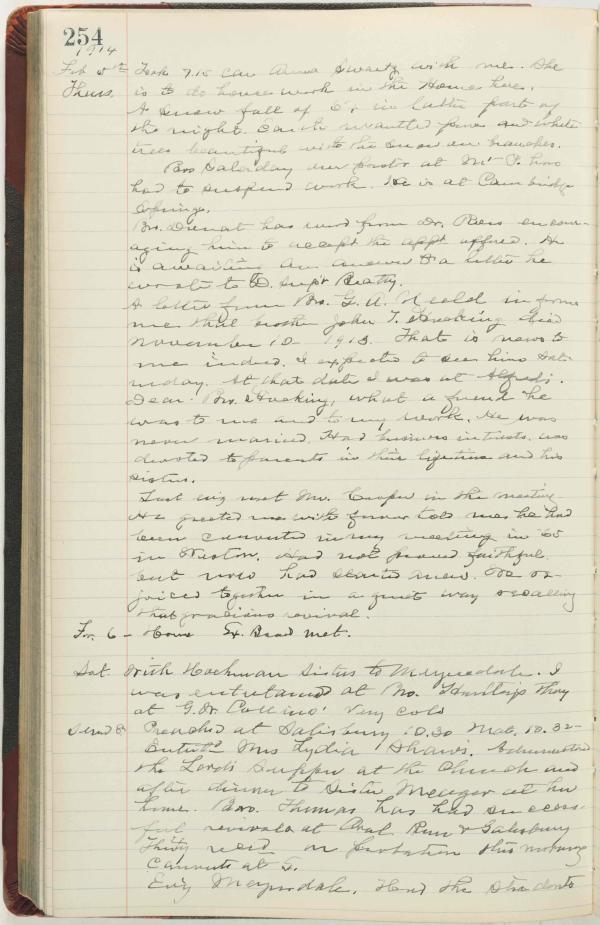 254
1914
Feb 5th Took 7.15 car Anna Swartz with me. She
Thurs. is to do house work in the Home here.
A snow fall of 6 in latter part of
the night. Earth mantled pure and white
trees beautiful with the snow on branches.
Bro Saladay our pastor at Mt. P. has
had to suspend work. He is at Cambridge
Springs.
Bro. has word from Dr. encour-
aging him to accept the appt offered. He
is awaiting an answer to a letter he
wrote to D. Supt Beatty.
A letter from Bro. G. W. informs
me that brother John T. Hocking died
November 12 1913. That is news to
me indeed. I expected to see him Sat-
urday. At that date I was at Alfred's.
Dear Bro. Hocking, what a friend he
was to me and to my work. He was
never married. Had business interests. was
devoted to parents in their lifetime and his
sisters.
Last evg met Mr. Cooper in the meeting
He greeted me with fervor told me he had
been converted in my meeting in '65
in Weston. Had not proved faithful
but now had started anew. We re-
joiced together in a quiet way recalling
that gracious revival.
Fr. 6 - Home Ex. Board met.
Sat. With Hockman Sisters to Meyersdale. I
was entertained at Bro. they
at G. W. Collins' Very cold
Sund 8 Preached at Salisbury 10.30 Mat. 10.32-
Entertd Mrs Lydia Shaws. Administered
the Lord's Supper at the Church and
after dinner to Sister at her
home. Bro. Thomas has had success-
ful revivals at Coal Run & Salisbury
Thirty recd on probation this morning
converts at S.
Evg Meyersdale. Hand the